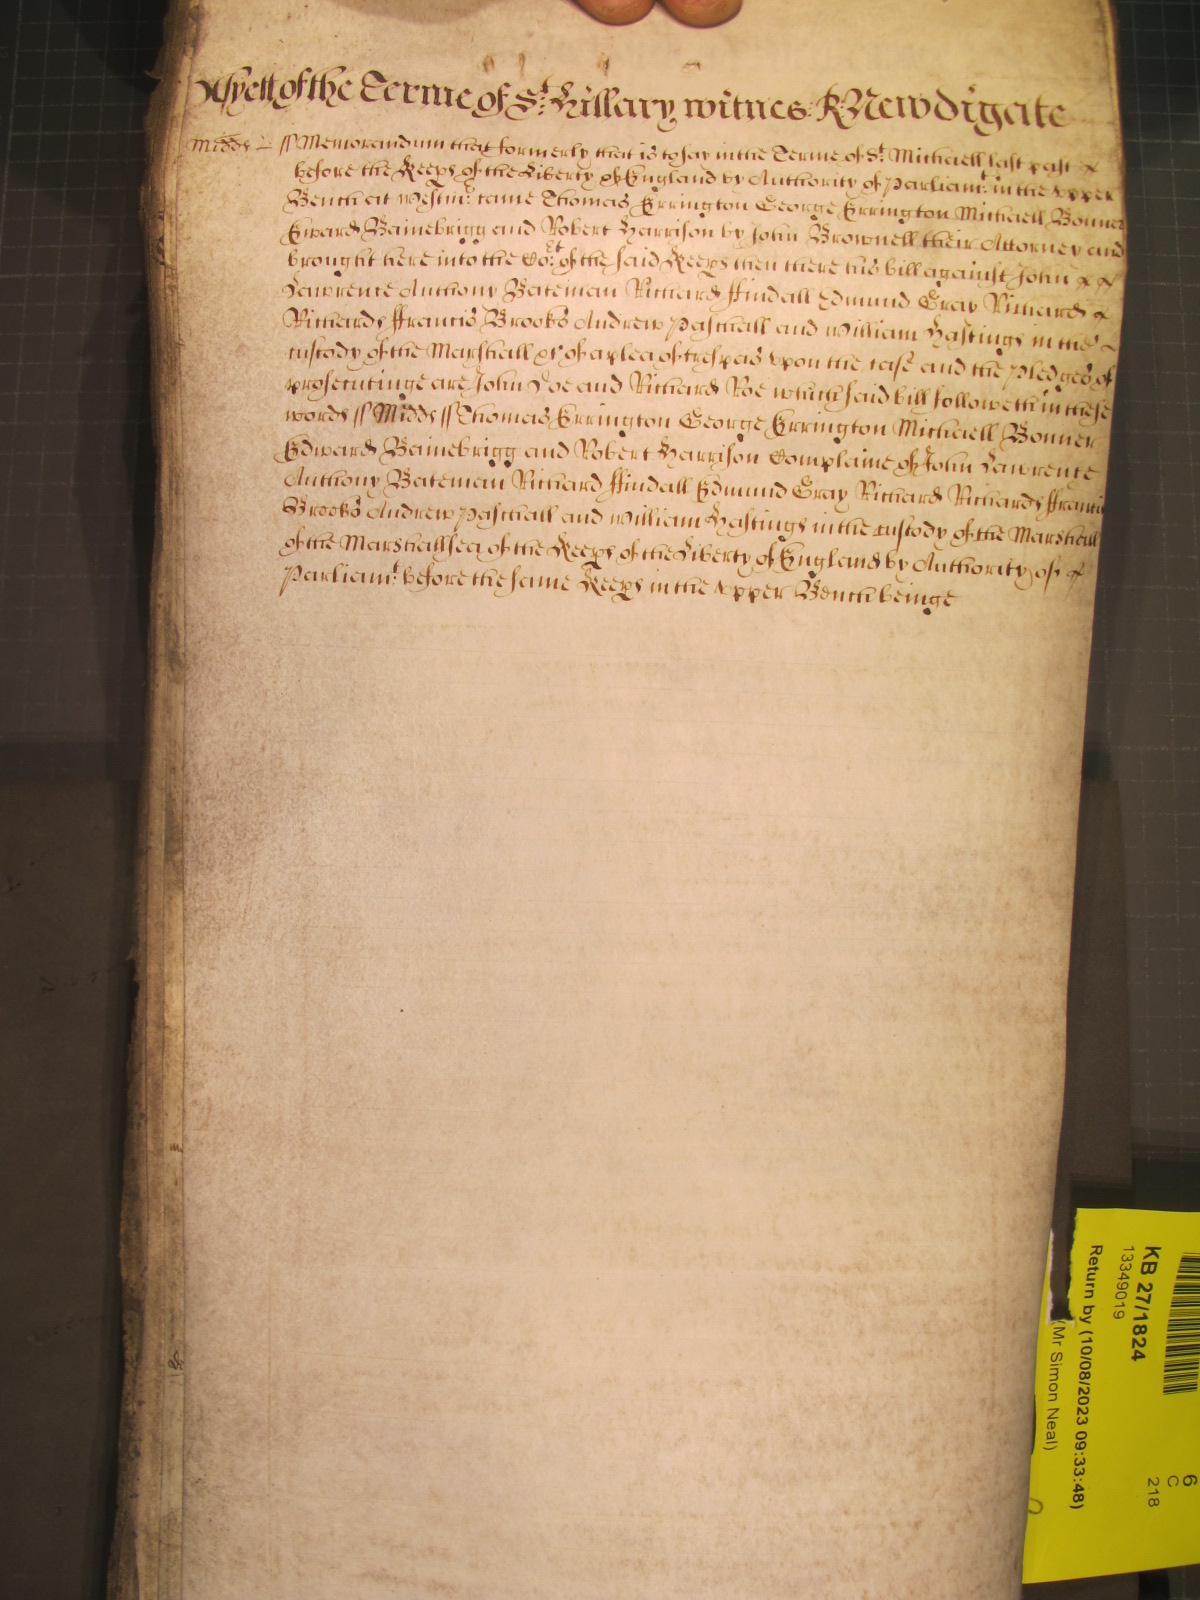 Wyett of the Terme of St. Hillary witnes R: Newdigate
Midds ss Memorandum that formerly that is to say in the Terme of St. Michaell last past
before the Keeps of the Liberty of England by Authority of Parliamt. in the upper
Bench at Westmr. came Thomas Errington George Errington Michaell Bonner
Edward Bainebrigg and Robert Harrison by John Brownell their Attorney and
brought here into the Cort. of the said Keeps then there this bill against John
Lawrence Anthony Bateman Richard ffindall Edmund Gray Richard
Richards ffrancis Brooks Andrew Paschall and William Hastings in the
custody of the Marshall &c of a plea of trespas upon the case and the pledges of
prosecutinge are John Doe and Richard Roe which said bill followeth in these
words ss Midds ss Thomas Errington George Errington Michaell Bonner
Edward Bainebrigg and Robert Harrison Complaine of John Lawrence
Anthony Bateman Richard ffindall Edmund Gray Richard Richards ffrancis
Brooks Andrew Paschall and William Hastings in the custody of the Marshall
of the Marshallsea of the Keeps of the Liberty of England by Authority of
Parliamt. before the same Keeps in the upper Bench beinge
KB 27/1824
13349019
Return by (10/08/2023 09:33:48)
(Mr Simon Neal)
6
C
218